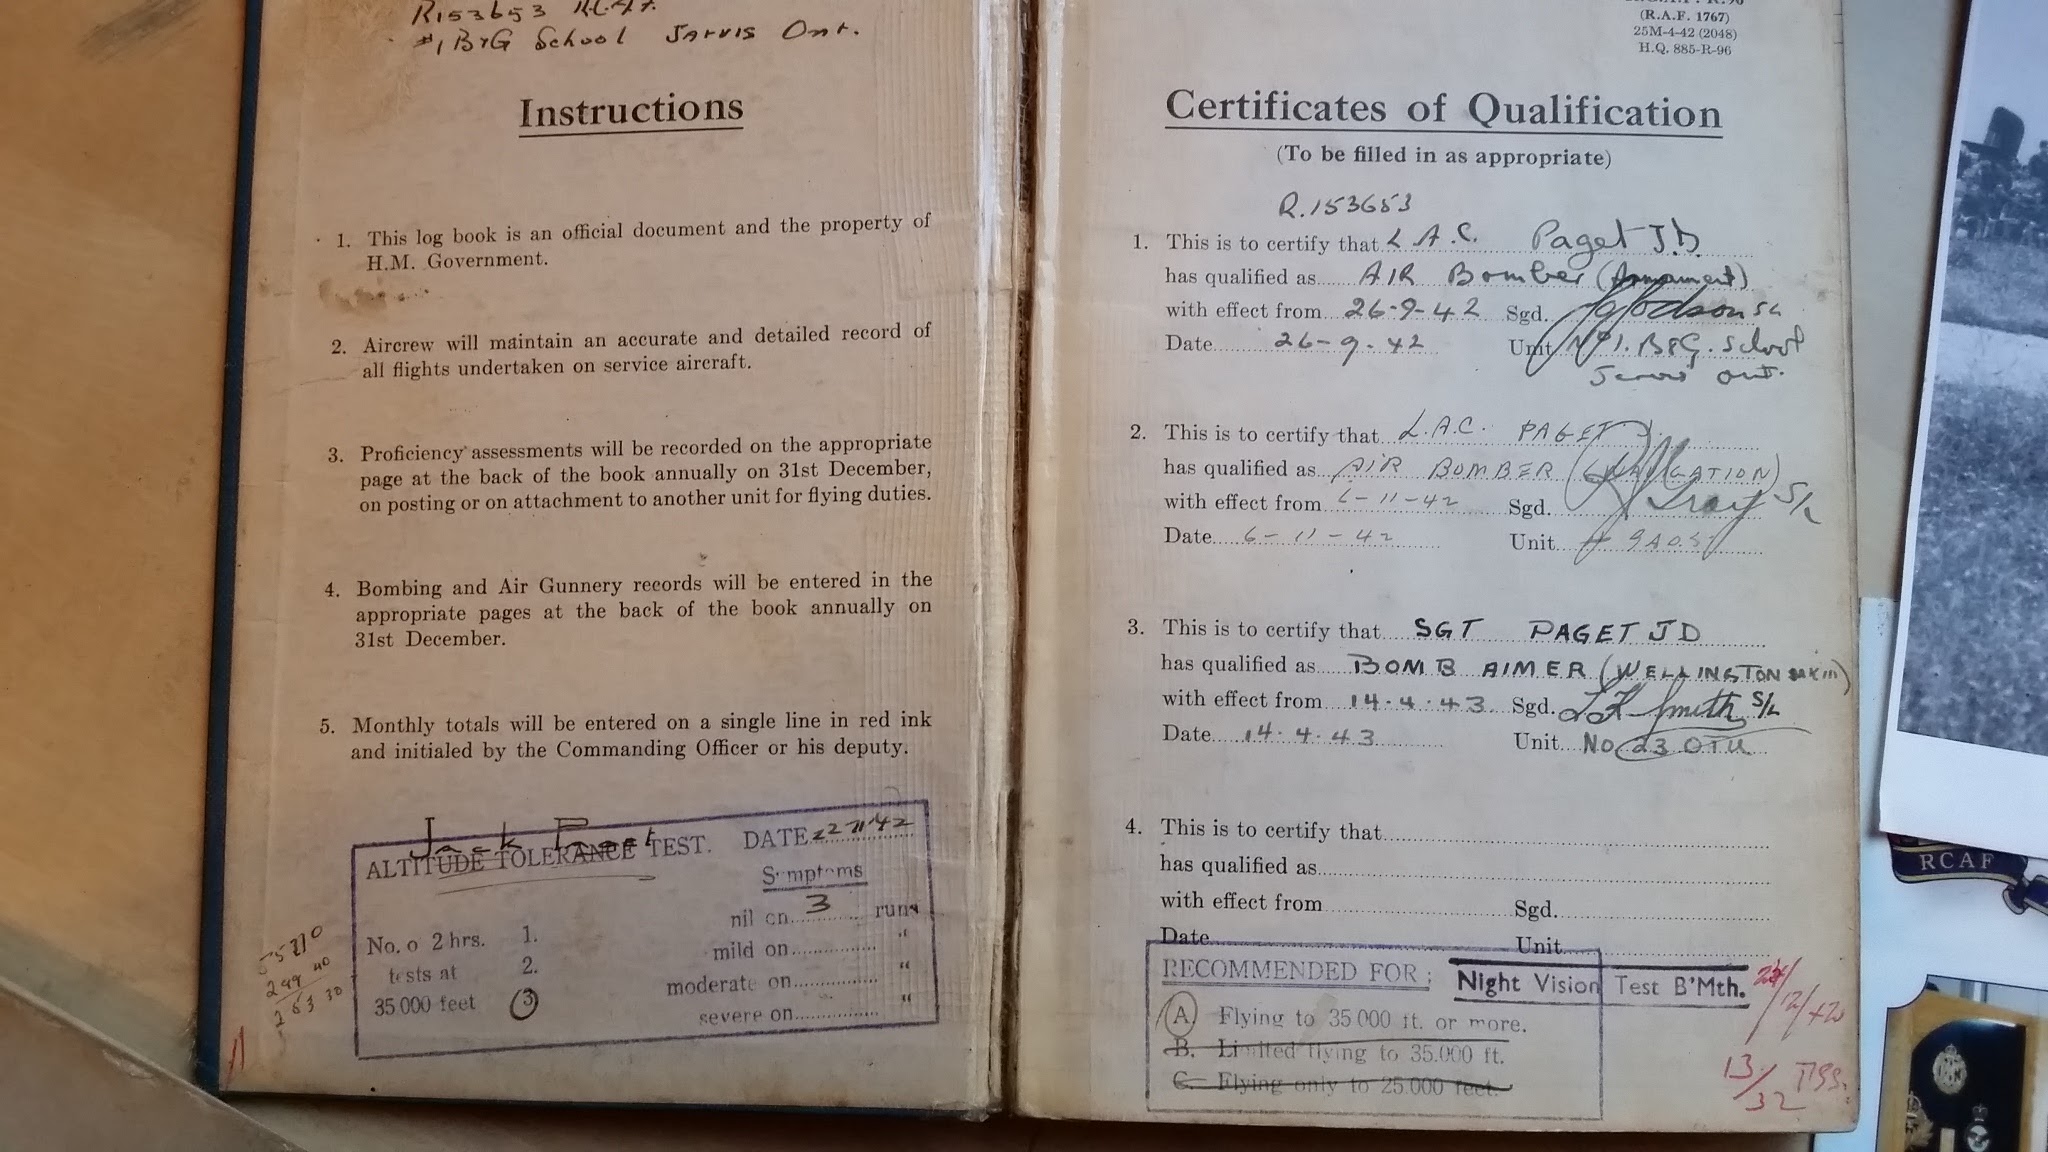 R153653
#1 B&G School Jarvis Ont.
Instructions
1. This log book is an official document and the property of
H.M. Government.
2. Aircrew will maintain an accurate and detailed record of
all flights undertaken on service aircraft.
3. Proficiency assessments will be recorded on the appropriate
page at the back of the book annually on 31st December,
on posting or on attachment to another unit for flying duties.
4. Bombing and Air Gunnery records will be entered in the
appropriate pages at the back of the book annually on
31st December.
5. Monthly totals will be entered on a single line in red ink
and initialed by the Commanding Officer or his deputy.
Jack Paget
ALTITUDE TOLERANCE TEST. DATE 22 11 42
Symptoms
nil on 3 runs
No. o 2 hrs. 1. mild on "
tests at 2. moderate on "
35.000 feet 3 severe on "
(R.A.F. 1767)
25M-4-42 (2048)
H.Q. 885-R-96
Certificates of Qualification
(To be filled in as appropriate)
R.153653
1. This is to certify that L.A.C. Paget J.D.
has qualified as AIR Bomber (Armament)
with effect from 26-9-42 Sgd.
Date 26-9-42 Unit No 1. B&G. School
Jarvis Ont.
2. This is to certify that L.A.C. PAGET J.
has qualified as AIR BOMBER (NAVIGATION)
with effect from 6-11-42 Sgd. Gray S/L
Date 6-11-42 Unit 9 A.O.S.
3. This is to certify that SGT PAGET JD
has qualified as BOMB AIMER (WELLINGTON MK III)
with effect from 14.4.43 Sgd. Smith S/L
Date 14.4.43 Unit No 23 OTU
4. This is to certify that
has qualified as
with effect from Sgd.
Date Unit
RECOMMENDED FOR: Night Vision Test B'Mth.
A Flying to 35.000 ft. or more.
B. Limited flying to 35.000 ft.
C. Flying only to 25.000 feet.
13/32
RCAF